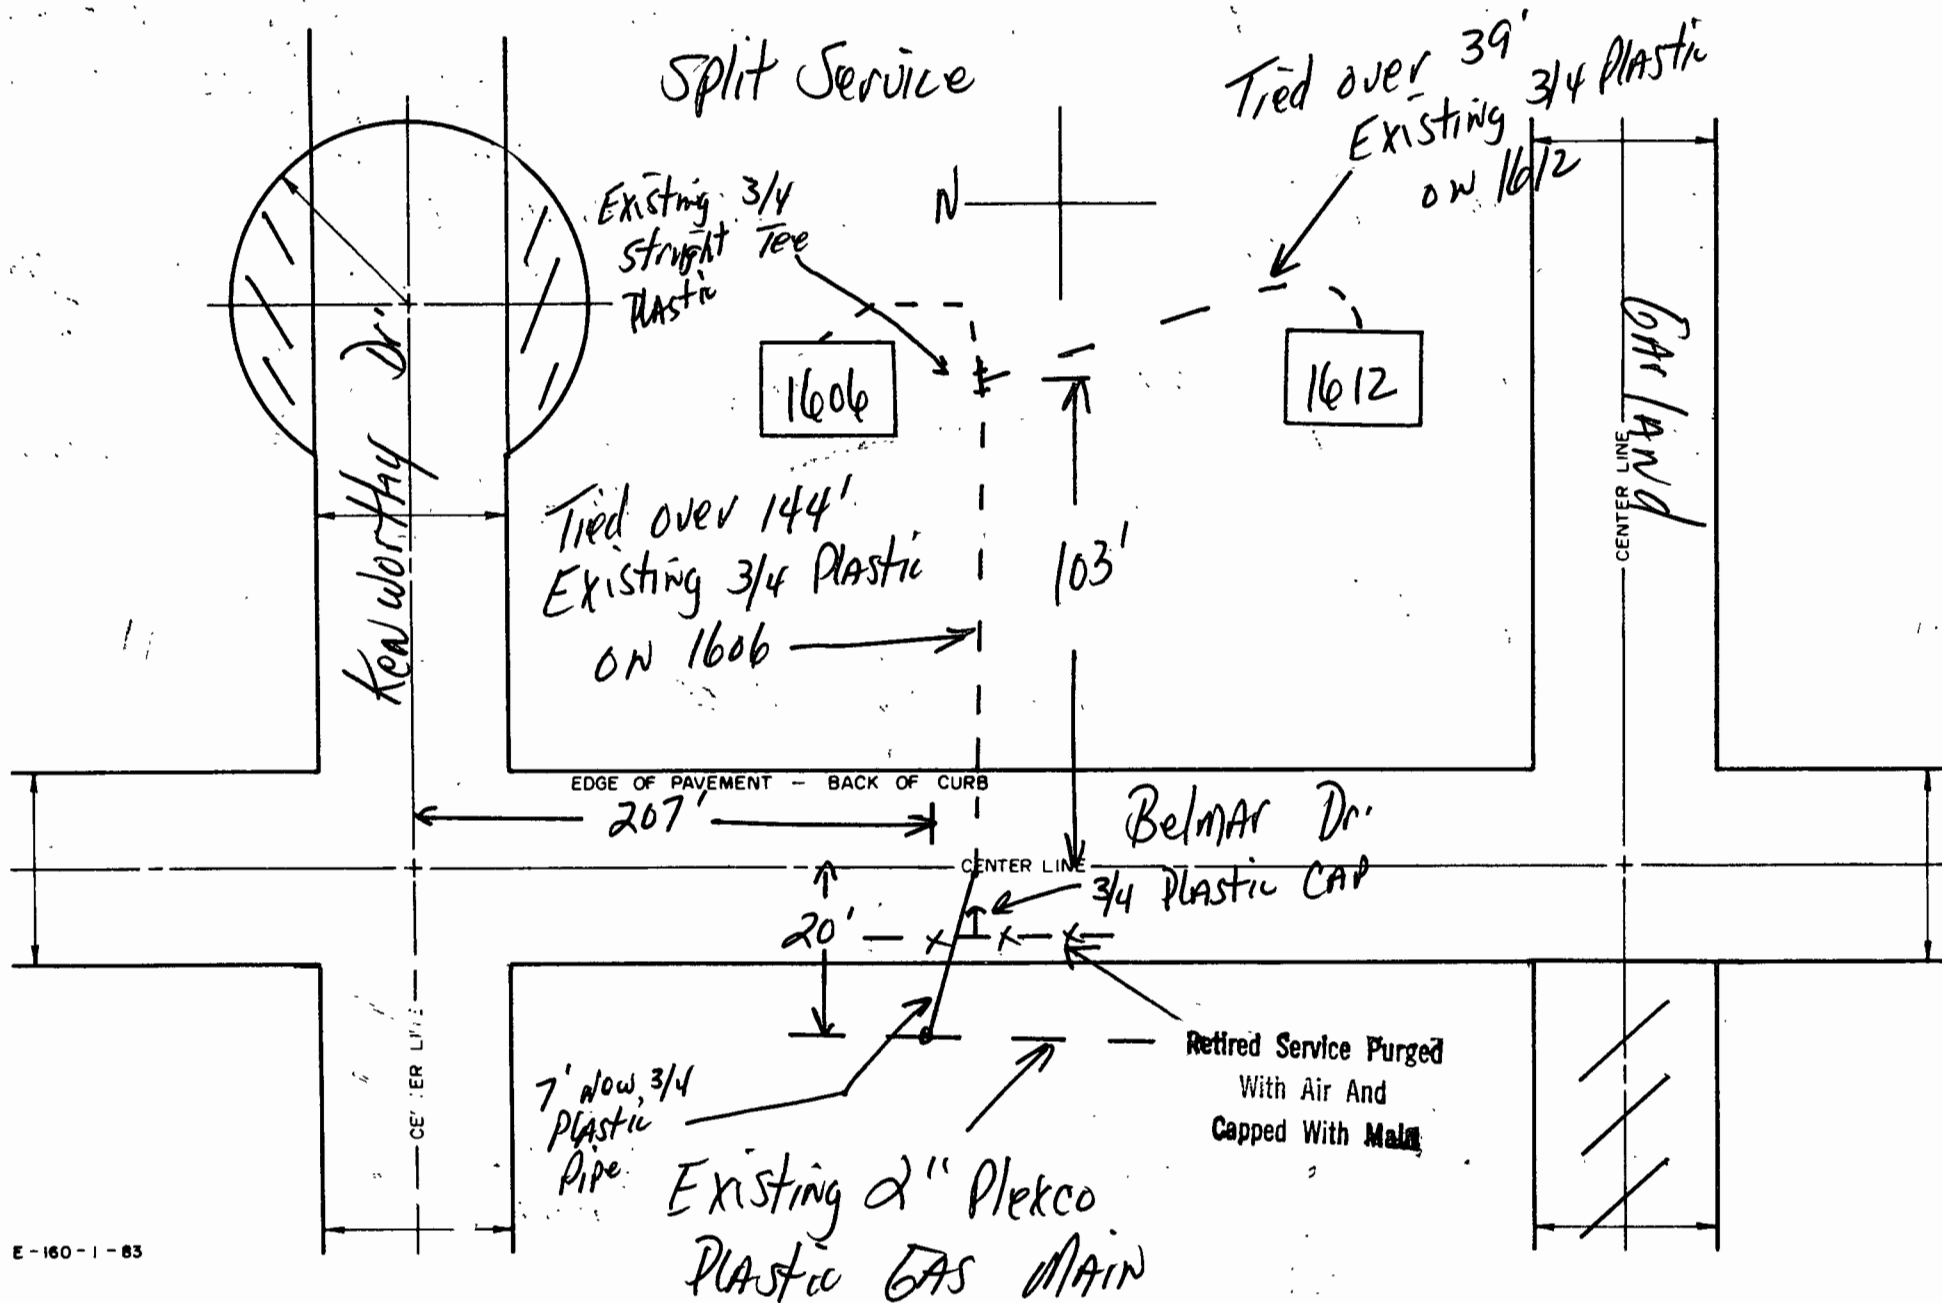 Split Service
Tied over 39'
Existing 3/4 Plastic
on 1612
N
Existing 3/4
Tee
Plastic
1606
1612
Kenworthy Dr.
Garland
CENTER LINE
Tied over 144'
Existing 3/4 Plastic
on 1606
103'
EDGE OF PAVEMENT - BACK OF CURB
207'
Belmar Dr.
CENTER LINE
3/4 Plastic CAP
20'
CENTER LINE
Retired Service Purged
With Air And
Capped With Main
7' New, 3/4
Plastic
Pipe
Existing 2" Plexco
Plastic GAS MAIN
E-160-1-83